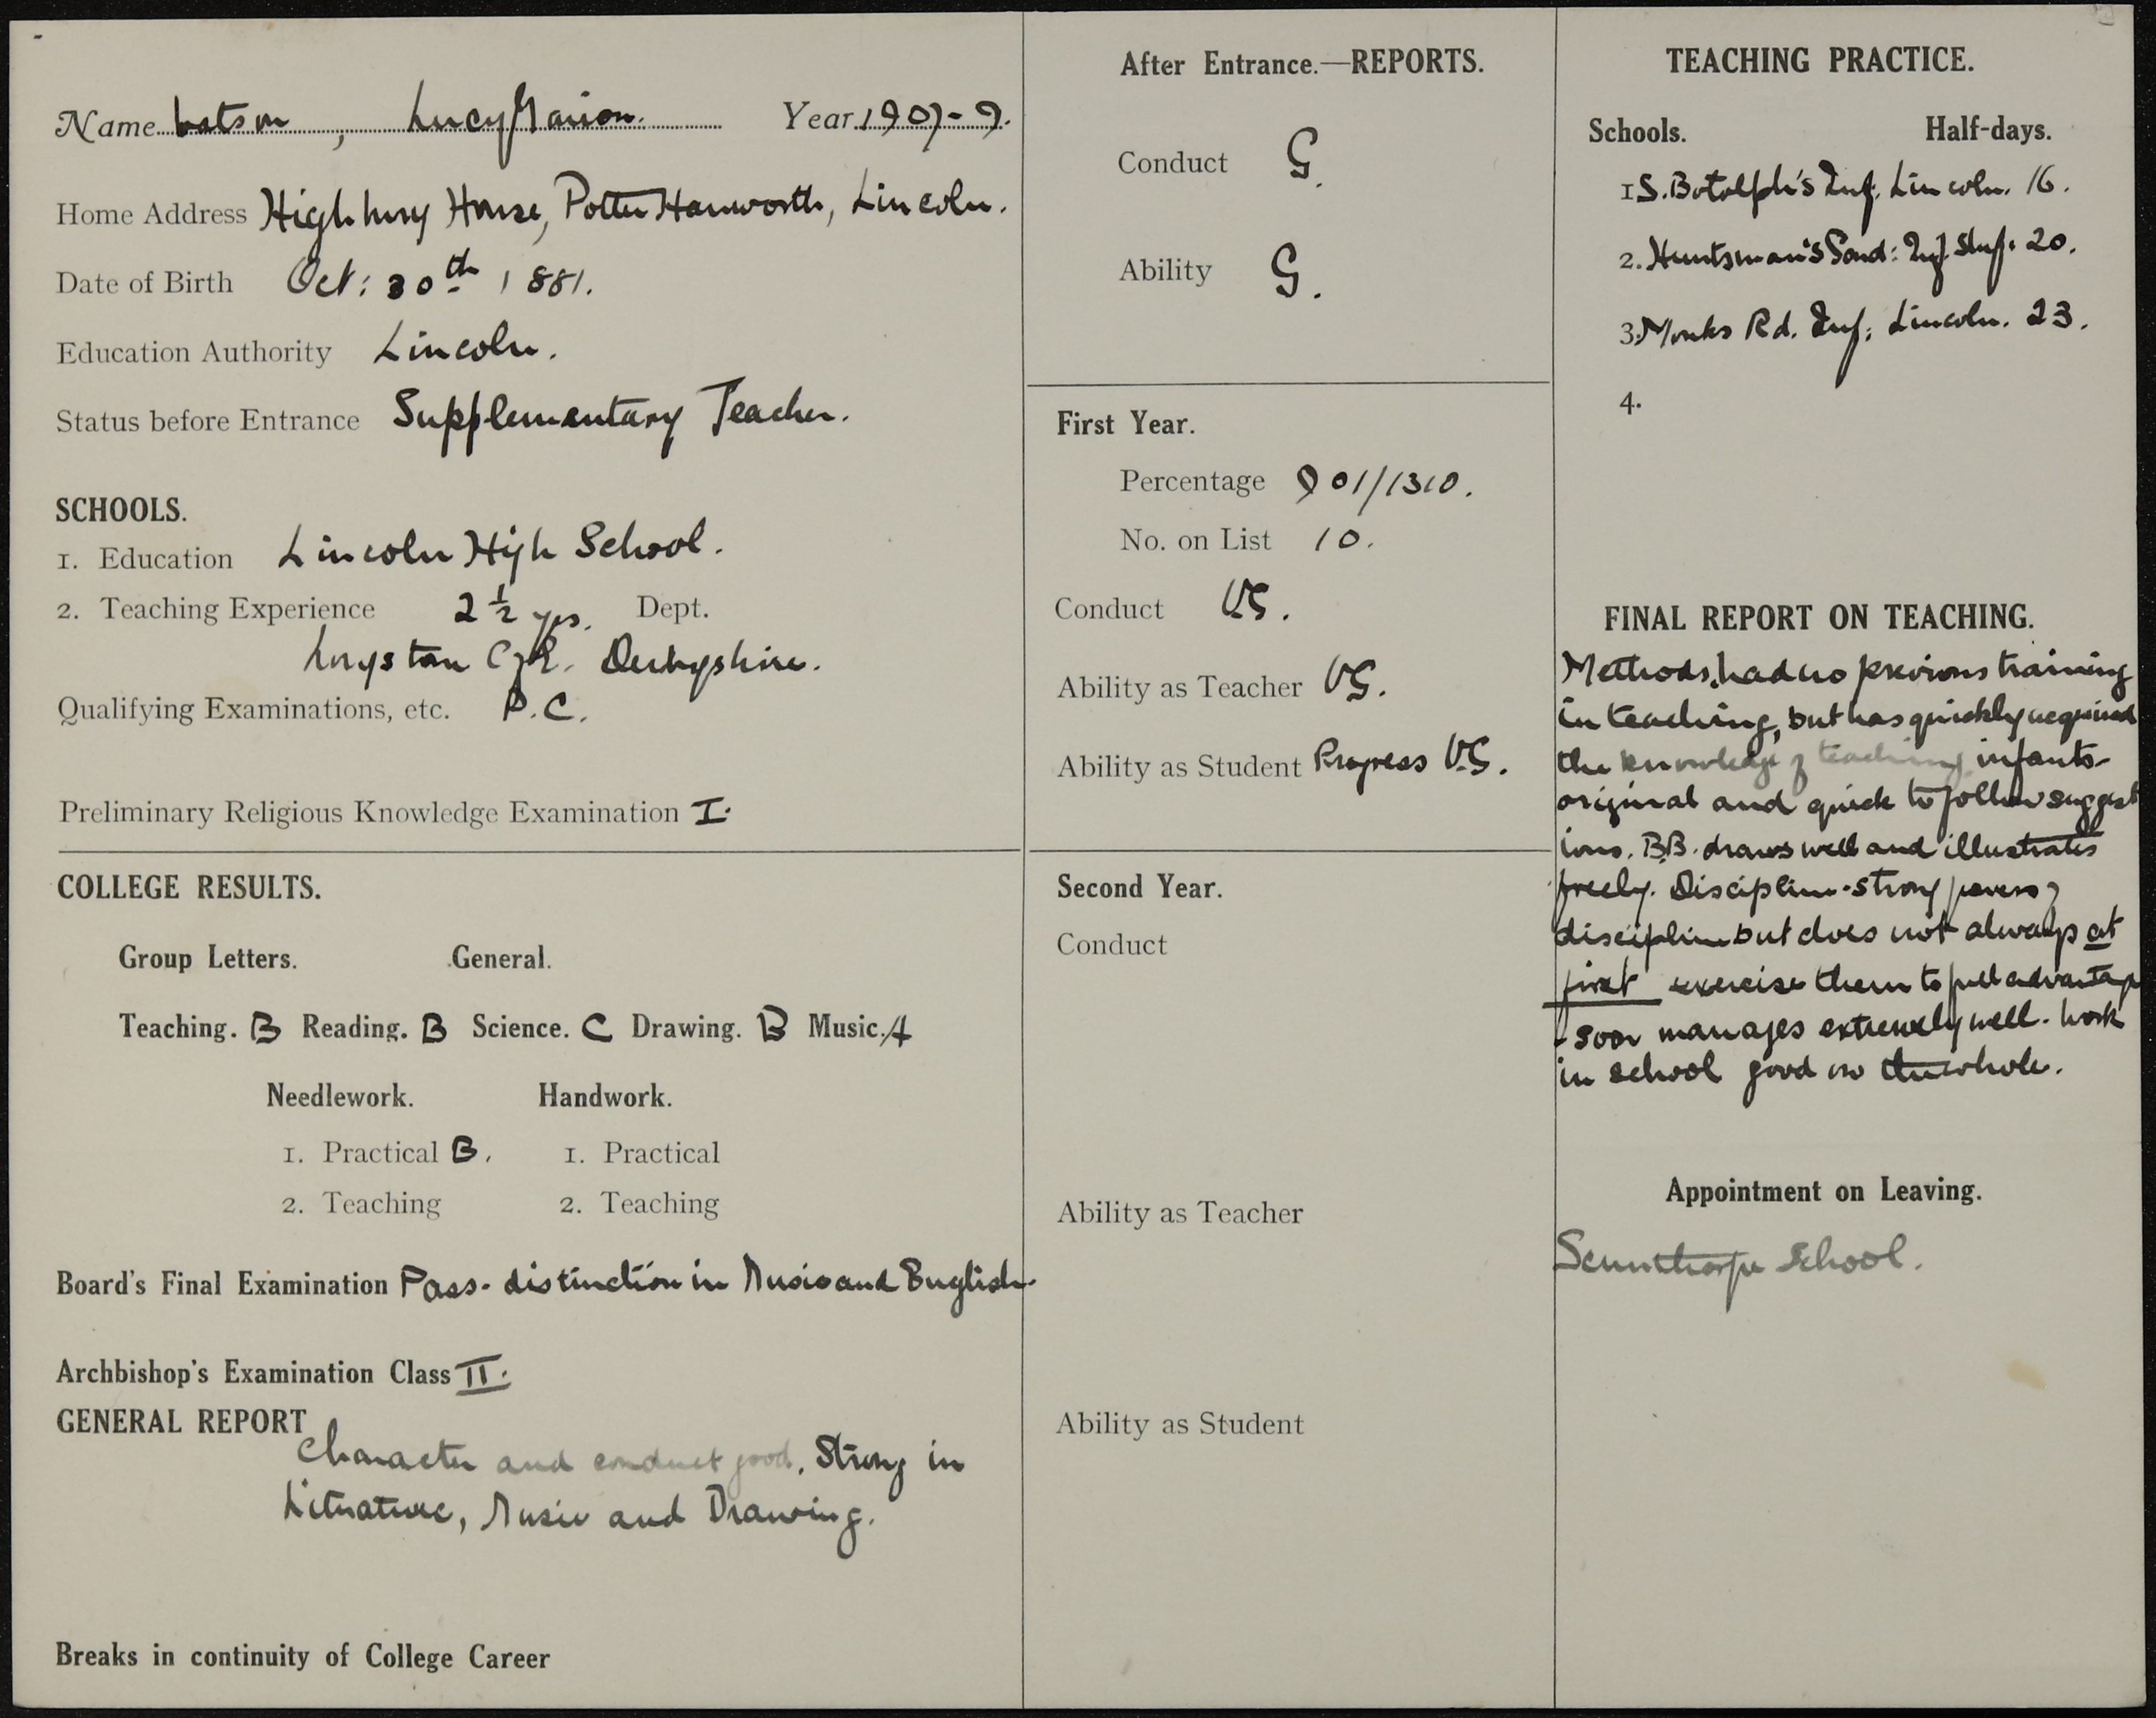 Name Watson, Lucy Marion. Year 1907-9.
Home Address Highbury House, Potter Hanworth, Lincoln.
Date of Birth Oct: 30th 1881.
Education Authority Lincoln.
Status before Entrance Supplementary Teacher.
SCHOOLS.
1. Education Lincoln High School.
2. Teaching Experience 2½ yrs. Dept.
C of E. Derbyshire.
Qualifying Examinations, etc. P.C.
Preliminary Religious Knowledge Examination I.
COLLEGE RESULTS.
Group Letters. General.
Teaching. B Reading. B Science. C Drawing. B Music. A
Needlework. Handwork.
1. Practical B. 1. Practical
2. Teaching 2. Teaching
Board's Final Examination Pass - distinction in Music and English.
Archbishop's Examination Class II.
GENERAL REPORT
Character and conduct good. Strong in
Literature, Music and Drawing.
Breaks in continuity of College Career
After Entrance.—REPORTS.
Conduct G.
Ability G.
First Year.
Percentage 901/1310.
No. on List 10.
Conduct VG.
Ability as Teacher VG.
Ability as Student Progress V.G.
Second Year.
Conduct
Ability as Teacher
Ability as Student
TEACHING PRACTICE.
Schools. Half-days.
1 S. Botolph's Inf. Lincoln. 16.
2. Huntsman's Gard: Inf. Shef. 20.
3. Monks Rd. Inf. Lincoln. 23.
4.
FINAL REPORT ON TEACHING.
Methods, had no previous training
in teaching, but has quickly acquired
the knowledge of teaching infants-
original and quick to follow suggest
ions. B.B. draws well and illustrates
freely. Discipline-strong powers of
discipline but does not always at
first exercise them to full advantage
- soon manages extremely well. Work
in school good on the whole.
Appointment on Leaving.
Scunthorpe School.